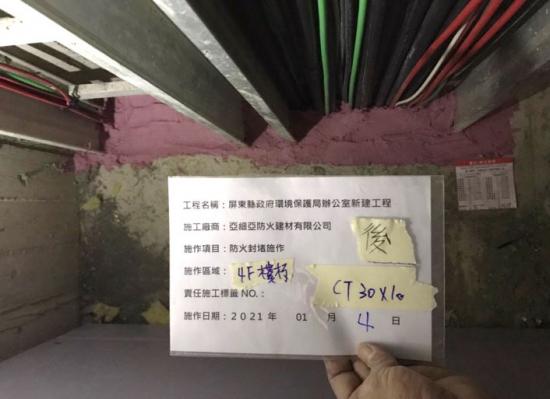 工程名稱：屏東縣政府環境保護局辦公室新建工程
施工廠商：亞細亞防火建材有限公司
後
施作項目：防火封堵施作
施作區域：4F樓板
責任施工標籤NO.：
CT 30X10
施作日期：2021 年 01 月 4 日